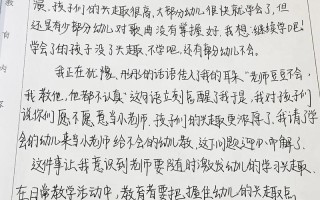 漫、孩子们的兴趣很高,大部分幼儿很快就学会了。但
还是有少部分幼儿对歌曲没有掌握好,我想:继续学吧!
学会了的孩子没了兴趣,不学吧,还有部分幼儿不会。
我正在犹豫,彤彤的话语传入我的耳朵"老师豆豆不会,
我教他,他都不认真"这句话立刻点醒了我于是,我对孩子们
说你们愿不愿意当小老师,孩子们的兴趣更浓厚了,我请了学
会的幼儿来当小老师给不会的幼儿教,这个问题迎刃而解了。
这件事让我意识到老师要随时激发幼儿的学习兴趣、
在日常教学活动中,教育者要把握住幼儿的兴趣点
教
育
内